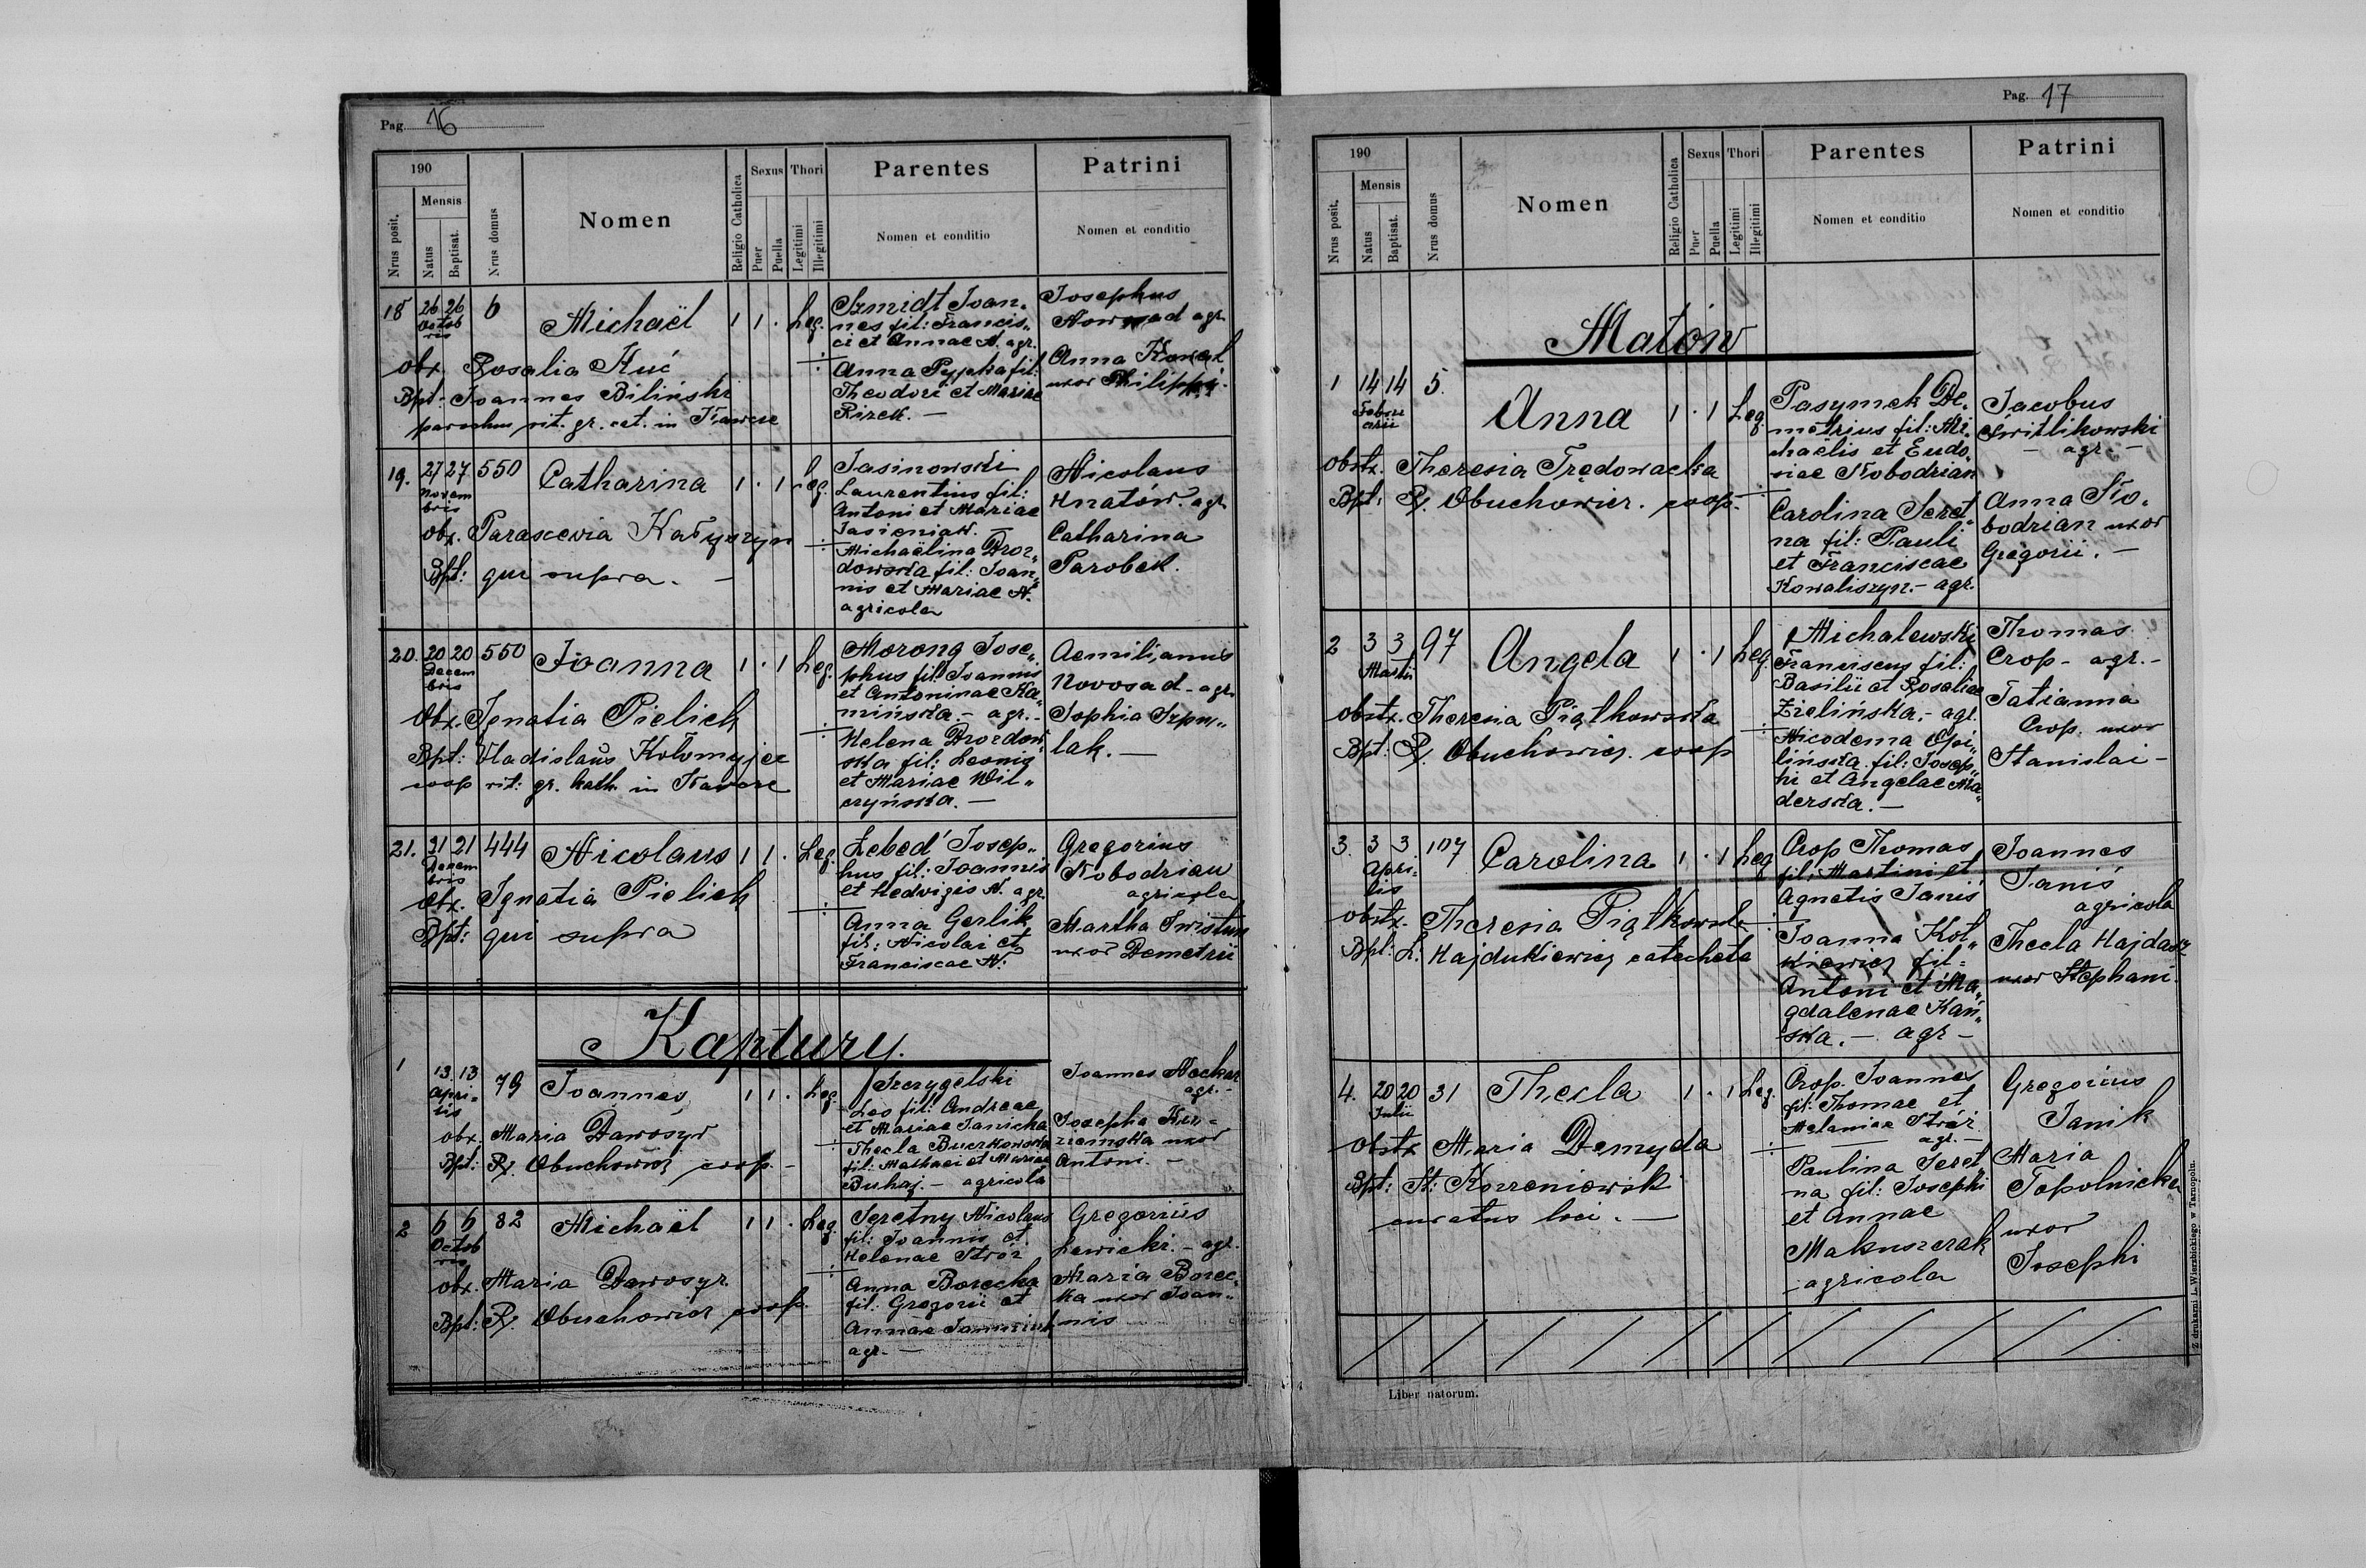 Pag. 16
190
Nrus posit.
Mensis
Natus
Baptisat.
Nrus domus
Nomen
Religio Catholica
Sexus
Puer
Puella
Thori
Legitimi
Illegitimi
Parentes
Nomen et conditio
Patrini
Nomen et conditio
18 26 26 6 Michaël 1 1 · Leg.
Octob
ris
obx. Rosalia Kuć
Bpt: Joannes Biliński
parochus rit. gr. cat. in
Szmidt Joan„
nes fil: Francis„
ci et Annae N. agr.
Anna Pypka fil:
Theodori et Mariae
Rizek. —
Josephus
Nowosad agr.
Anna Kowal
uxor Philippi.
19. 27 27 550 Catharina 1 · 1 Leg.
Novem
bris
obx. Parascevia Kałyszyn
Bpt: qui supra. —
Jasinowski
Laurentius fil:
Antoni et Mariae
Jasieniak. —
Michaëlina Droz„
dowska fil: Joan„
nis et Mariae N.
agricola
Nicolaus
Hnatów. agr.
Catharina
Parobek.
20. 20 20 550 Joanna 1 · 1 Leg.
Decem
bris
Obx. Ignatia Pielich
Bpt: Vladislaus Kołomyjec
coop rit: gr. kath. in
Morong Jose„
phus fil: Joannis
et Antoninae Ka„
mińska. — agr. —
Helena Drozdow„
ska fil: Leonis
et Mariae Wil„
czyńska. —
Aemilianus
Novosad - agr.
Sophia Szpy„
lak. —
21. 21 21 444 Nicolaus 1 1 · Leg.
Decem
bris
obx. Ignatia Pielich
Bpt: qui supra
Łebed' Josep„
hus fil: Joannis
et Hedvigis N. agr.
Anna Gerlik
fil: Nicolai et
Franciscae N.
Gregorius
Kobodrian
agricola
Martha Swistun
uxor Demetrii
Kaptury.
1 13 13 79 Joannes 1 1 · Leg.
Apri-
lis
obx. Maria Dawosyr
Bpt: R. Obuchowicz coop. -
Szczygelski
Leo fil: Andreae
et Mariae Janicka
Thecla Buczkowska
fil: Mathaei et Mariae
Buhaj. — agricola
Joannes
agr. -
Josepha
uxor
Antoni. —
2 6 6 82 Michaël 1 1 · Leg.
Octob
ris
obx. Maria Dawosyr.
Bpt: R. Obuchowicz coop.
Seretny Nicolaus
fil: Joannis et
Helenae Stróż
Anna Borecka
fil: Gregorii et
Annae
agr. —
Gregorius
Lewicki. - agr.
Maria Borec„
ka uxor Joan„
nis
Pag. 17
190
Nrus posit.
Mensis
Natus
Baptisat.
Nrus domus
Nomen
Religio Catholica
Sexus
Puer
Puella
Thori
Legitimi
Illegitimi
Parentes
Nomen et conditio
Patrini
Nomen et conditio
Matów
1 14 14 5. Anna 1 · 1 Leg.
Febru
arii
obstx. Theresia Trędowacka
Bpt: R. Obuchowicz. coop. -
Pasymek De„
metrius fil: Mi„
chaëlis et Eudo„
siae Kobodrian
Carolina Seret„
na fil: Pauli
et Franciscae
Kowaliszyn. - agr.
Jacobus
Switlikowski
— agr. —
Anna Ko„
bodrian uxor
Gregorii. —
2 3 3 97 Angela 1 · 1 Leg.
Martii
obstx. Theresia Piątkowska
Bpt: R. Obuchowicz. coop
Michalewski
Franciscus fil:
Basilii et Rosaliae
Zielińska. - agr.
Nicodema Opi„
lińska fil: Josep„
hi et Angelae Ma„
derska. —
Thomas
Crop - agr. -
Tatianna
Crop. uxor
Stanislai -
3. 3 3 107 Carolina 1 · 1 Leg
Apri-
lis
obstx. Theresia Piątkowska
Bpt: L. Hajdukiewicz catecheta
Crop Thomas
fil: Martini et
Agnetis Janiś
Joanna Kot„
kiewicz fil=
Antoni et Ma„
gdalenae Kań„
ska. — agr -
Joannes
Janiś
agricola
Thecla Hajdasz
uxor Stephani.
4. 20 20 31 Thecla 1 · 1 Leg.
Julii
Obstx Maria Demyda
Bpt: St: Korzeniowski
curatus loci. —
Crop. Joannes
fil: Thomae et
Melaniae Stróż
agr. —
Paulina Seret„
na fil: Josephi
et Annae
Makuszczak
- agricola
Gregorius
Janik
Maria
Topolnicka
uxor
Josephi
Liber natorum.
Z drukarni L. Wierzbickiego w Tarnopolu.